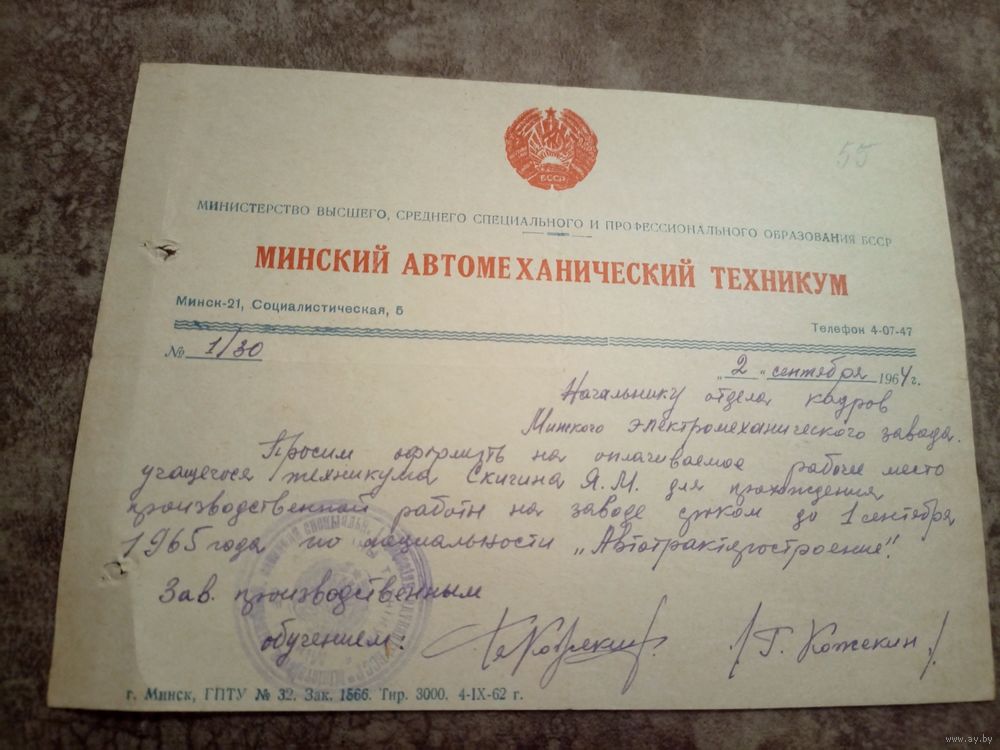 55
БССР
МИНИСТЕРСТВО ВЫСШЕГО, СРЕДНЕГО СПЕЦИАЛЬНОГО И ПРОФЕССИОНАЛЬНОГО ОБРАЗОВАНИЯ БССР
МИНСКИЙ АВТОМЕХАНИЧЕСКИЙ ТЕХНИКУМ
Минск-21, Социалистическая, 5
Телефон 4-07-47
№ 1/30
„2„ сентября 1964 г.
Начальнику отдела кадров
Минского электромеханического завода.
Просим оформить на оплачиваемое рабочее место
учащегося техникума Скигина Я.М. для прохождения
производственной работы на заводе сроком до 1 сентября
1965 года по специальности „Автотракторостроение".
Зав. производственным
обучением:
/Г. Кожекин/
г. Минск, ГПТУ № 32. Зак. 1566. Тир. 3000. 4-IX-62 г.
www.ay.by